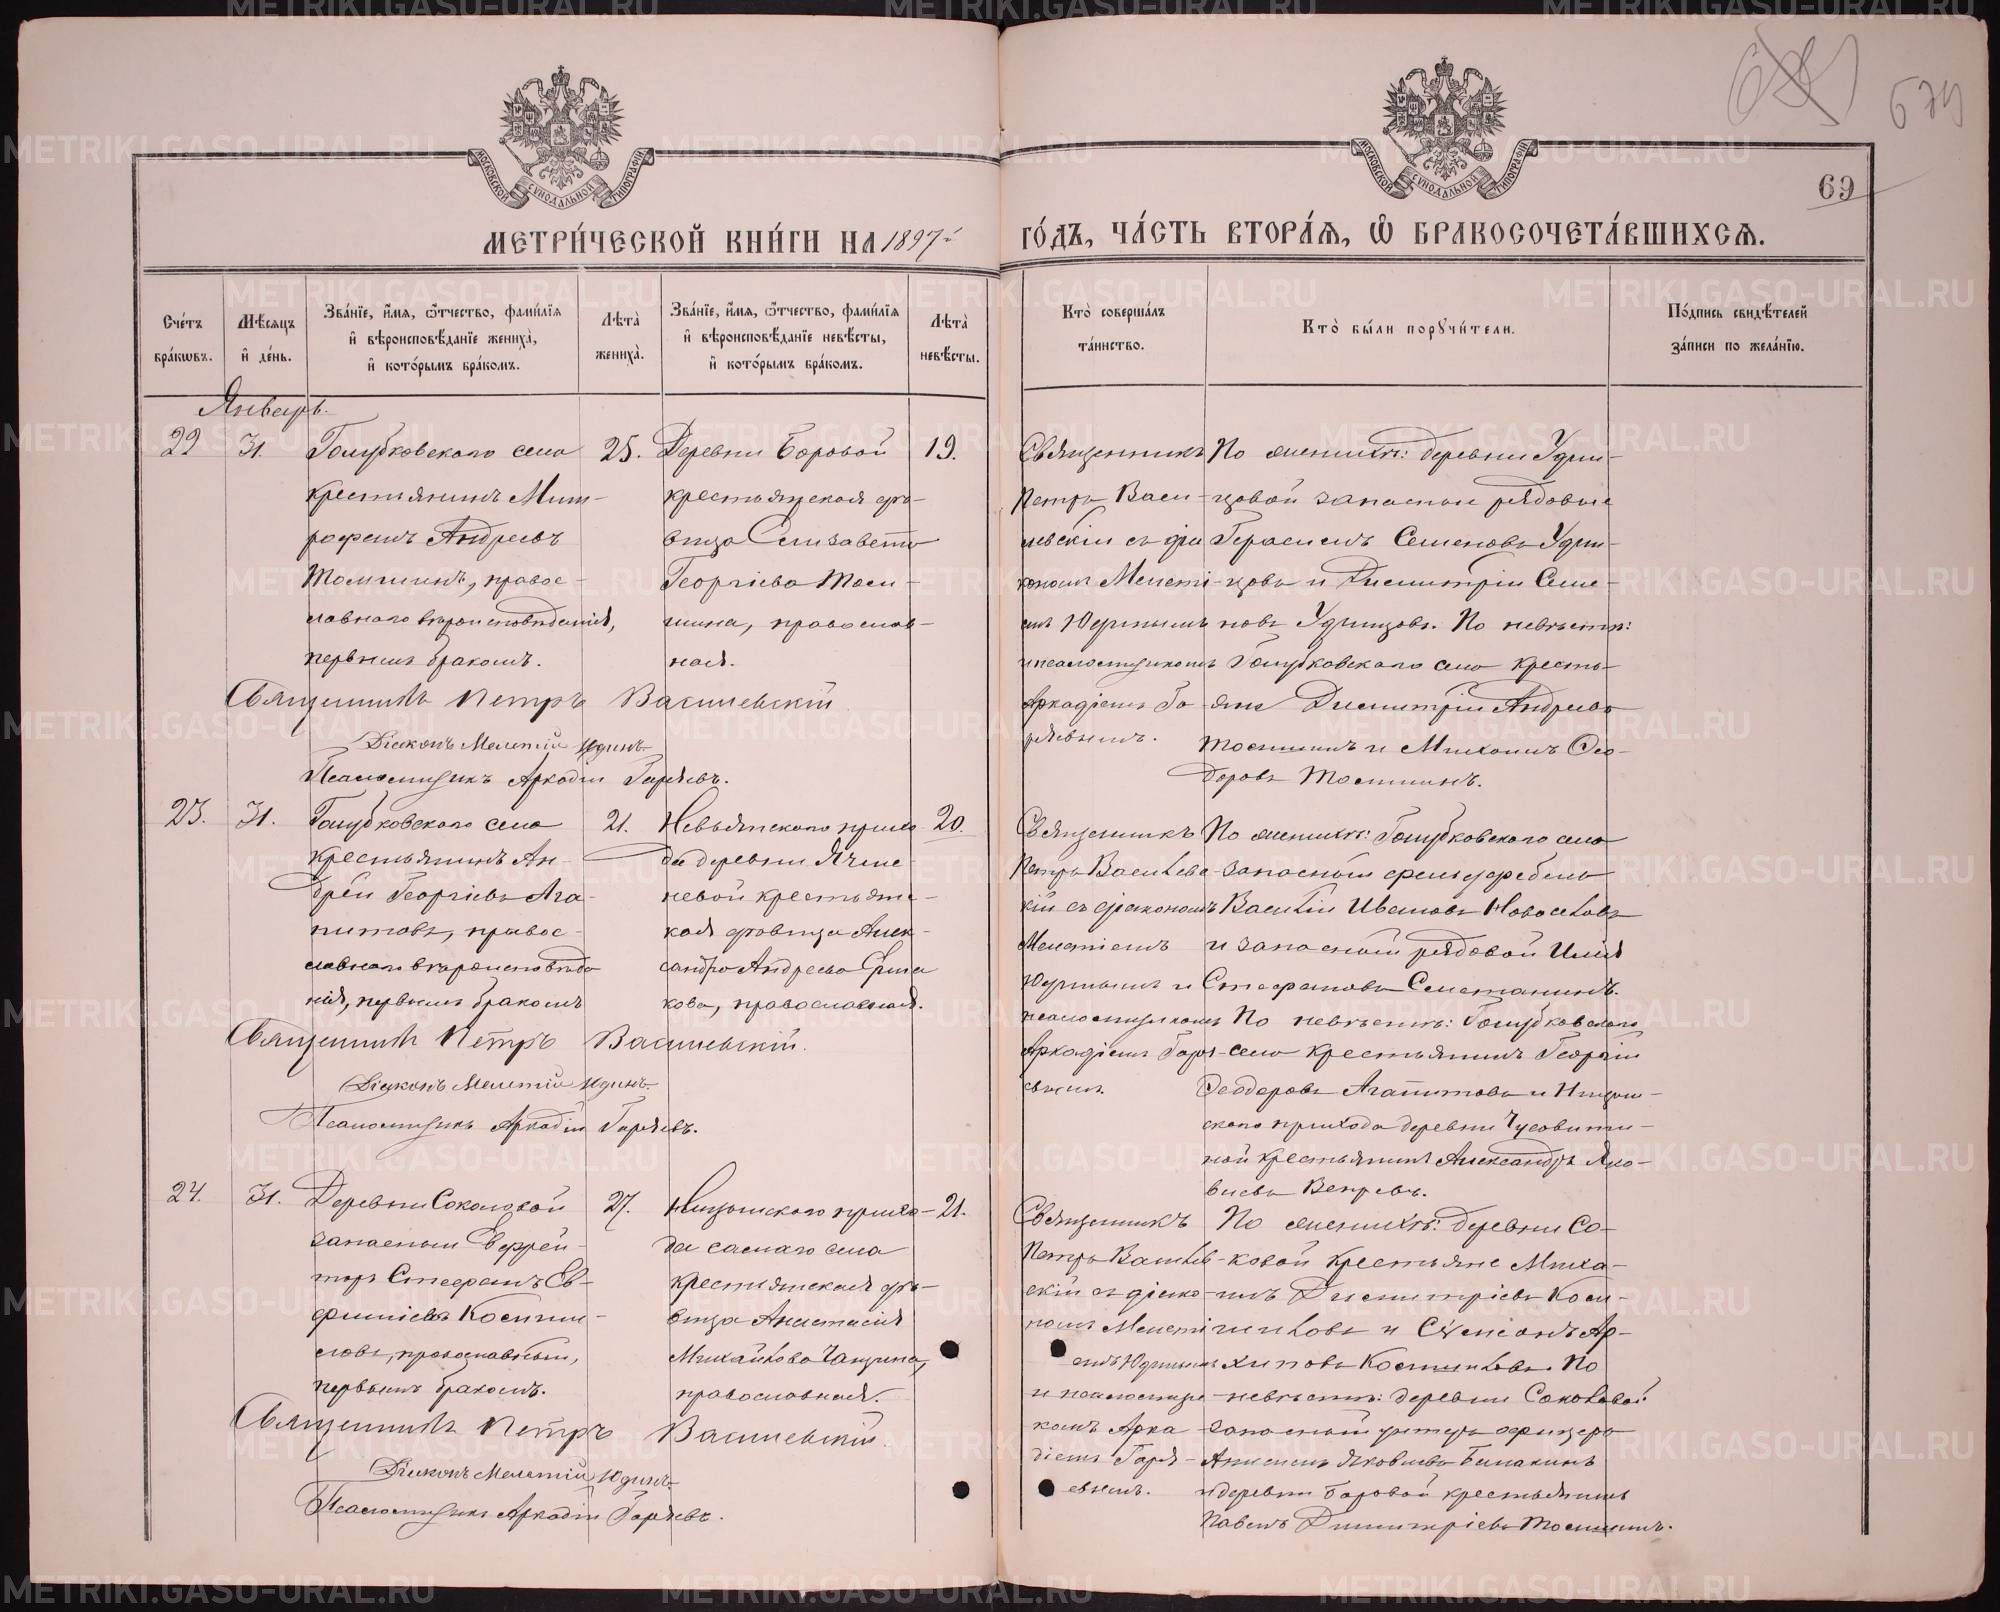 679
69
МОСКОВСКОЙ СѴНОДАЛЬНОЙ ТИПОГРАФІИ
МОСКОВСКОЙ СѴНОДАЛЬНОЙ ТИПОГРАФІИ
МЕТРИ́ЧЕСКОЙ КНИ́ГИ НА 1897й
ГО́ДЪ, ЧА́СТЬ ВТОРА́Я, Ѡ БРАКОСОЧЕТА́ВШИХСЯ.
Сче́тъ бра́кѡвъ.
Мѣ́сяцъ и҆ де́нь.
Зва́нїе, и҆́мя, ѻ҆́тчество, фами́лїя
и҆ вѣроисповѣ́данїе жениха̀,
и҆ кото́рымъ бра́комъ.
Лѣта̀ жениха̀.
Зва́нїе, и҆́мя, ѻ҆́тчество, фами́лїя
и҆ вѣроисповѣ́данїе невѣ́сты,
и҆ кото́рымъ бра́комъ.
Лѣта̀ невѣ́сты.
Кто̀ соверша́лъ
та́инство.
Кто̀ бы́ли порꙋчи́тели.
По́дпись свидѣ́телей
за́писи по жела́нїю.
Январь.
22
31.
Голубковскаго села
крестьянинъ Мит-
рофанъ Андреевъ
Томшинъ, правос-
лавнаго вѣроисповѣданія,
первымъ бракомъ.
25.
Деревни Боровой
крестьянская дѣ-
вица Елизавета
Георгіева Том-
шина, православ-
ная.
19.
Священникъ
Петръ Васи-
левскій съ діа
кономъ Мелеті-
емъ Юдинымъ
и псаломщикомъ
Аркадіемъ Го
ряевымъ.
По женихѣ: деревни Удин-
цовой запасные рядовые
Герасимъ Семеновъ Удин-
цовъ и Димитрій Семе-
новъ Удинцовъ. По невѣстѣ:
Голубковскаго села кресть-
яне Димитрій Андреевъ
Томшинъ и Михаилъ Ѳео-
доровъ Томшинъ.
Священникъ Петръ Василевскій
Діаконъ Мелетій Юдинъ
Псаломщикъ Аркадій Горяевъ.
23.
31.
Голубковскаго села
крестьянинъ Ан-
дрей Георгіевъ Ага-
питовъ, правос-
лавнаго вѣроисповѣда
нія, первымъ бракомъ
21.
Невьянскаго прихо
да деревни Ячме-
невой крестьянс-
кая дѣвица Алек-
сандра Андреева Ерма
кова, православная.
20.
Священникъ
Петръ Василевс
кій съ діакономъ
Мелетіемъ
Юдинымъ и
псаломщикомъ
Аркадіемъ Горя-
евымъ.
По женихѣ: Голубковскаго села
запасный фельдфебель
Василій Ивановъ Новоселовъ
и запасный рядовой Илія
Стефановъ Сметанинъ.
По невѣстѣ: Голубковскаго
села крестьянинъ Георгій
Ѳеодоровъ Агапитовъ и Ницин-
скаго прихода деревни Чусовити-
ной крестьянинъ Александръ Яко-
влевъ Вепревъ.
Священникъ Петръ Василевскій.
Діаконъ Мелетій Юдинъ
Псаломщикъ Аркадій Горяевъ.
24.
31.
Деревни Соколовой
запасный Ефрей-
торъ Стефанъ Ев-
фиміевъ Костыле-
ловъ, православный,
первымъ бракомъ.
27.
Ницинскаго прихо-
да самаго села
крестьянская дѣ-
вица Анастасія
Михайлова Чащина,
православная.
21.
Священникъ
Петръ Василев-
скій съ діако-
номъ Мелеті
емъ Юдинымъ
и псаломщи-
комъ Арка
діемъ Горя-
евымъ.
По женихѣ: деревни Со-
ковой крестьяне Миха-
илъ Димитріевъ Косы-
и Сѵмеонъ Ар-
хиповъ По
невѣстѣ: деревни Соколовой
запасный унтеръ офицеръ
Анисимъ Яковлевъ Балакинъ
и деревни Боровой крестьянинъ
Павелъ Димитріевъ Томшинъ.
Священникъ Петръ Василевскій.
Діаконъ Мелетій Юдинъ
Псаломщикъ Аркадій Горяевъ.
METRIKI.GASO-URAL.RU